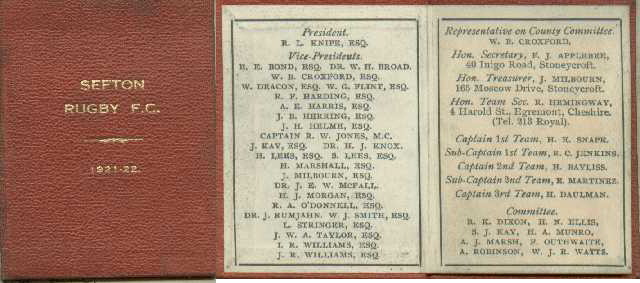 SEFTON
RUGBY F.C.
1921-22.
President.
R. L. KNIPE, ESQ.
Vice-Presidents.
R. E. BOND, ESQ. DR. W. H. BROAD.
W. B. CROXFORD, ESQ.
W. DEACON, ESQ. W. G. FLINT, ESQ.
R. F. HARDING, ESQ.
A. E. HARRIS, ESQ.
J. B. HERRING, ESQ.
J. H. HELME, ESQ.
CAPTAIN R. W. JONES, M.C.
J. KAY, ESQ. DR. H. J. KNOX.
H. LEES, ESQ. S. LEES, ESQ.
H. MARSHALL, ESQ.
J. MILBOURN, ESQ.
DR. J. E. W. MCFALL.
H. J. MORGAN, ESQ.
R. A. O'DONNELL, ESQ.
DR. J. RUMJAHN. W. J. SMITH, ESQ.
L. STRINGER, ESQ.
J. W. A. TAYLOR, ESQ.
I. R. WILLIAMS, ESQ.
J. R. WILLIAMS, ESQ.
Representative on County Committee.
W. B. CROXFORD.
Hon. Secretary, F. J. APPLEBEE,
40 Inigo Road, Stoneycroft.
Hon. Treasurer, J. MILBOURN,
165 Moscow Drive, Stoneycroft.
Hon. Team Sec. R. HEMINGWAY,
4 Harold St., Egremont, Cheshire.
(Tel. 213 Royal).
Captain 1st Team, H. H. SNAPE.
Sub-Captain 1st Team, R. C. JENKINS.
Captain 2nd Team, H. BAYLISS.
Sub-Captain 2nd Team, E. MARTINEZ.
Captain 3rd Team, H. DAULMAN.
Committee.
R. K. DIXON, H. N. ELLIS,
S. J. KAY, H. A. MUNRO,
A. J. MARSH, F. OUTHWAITE,
A. ROBINSON, W. J. R. WATTS.